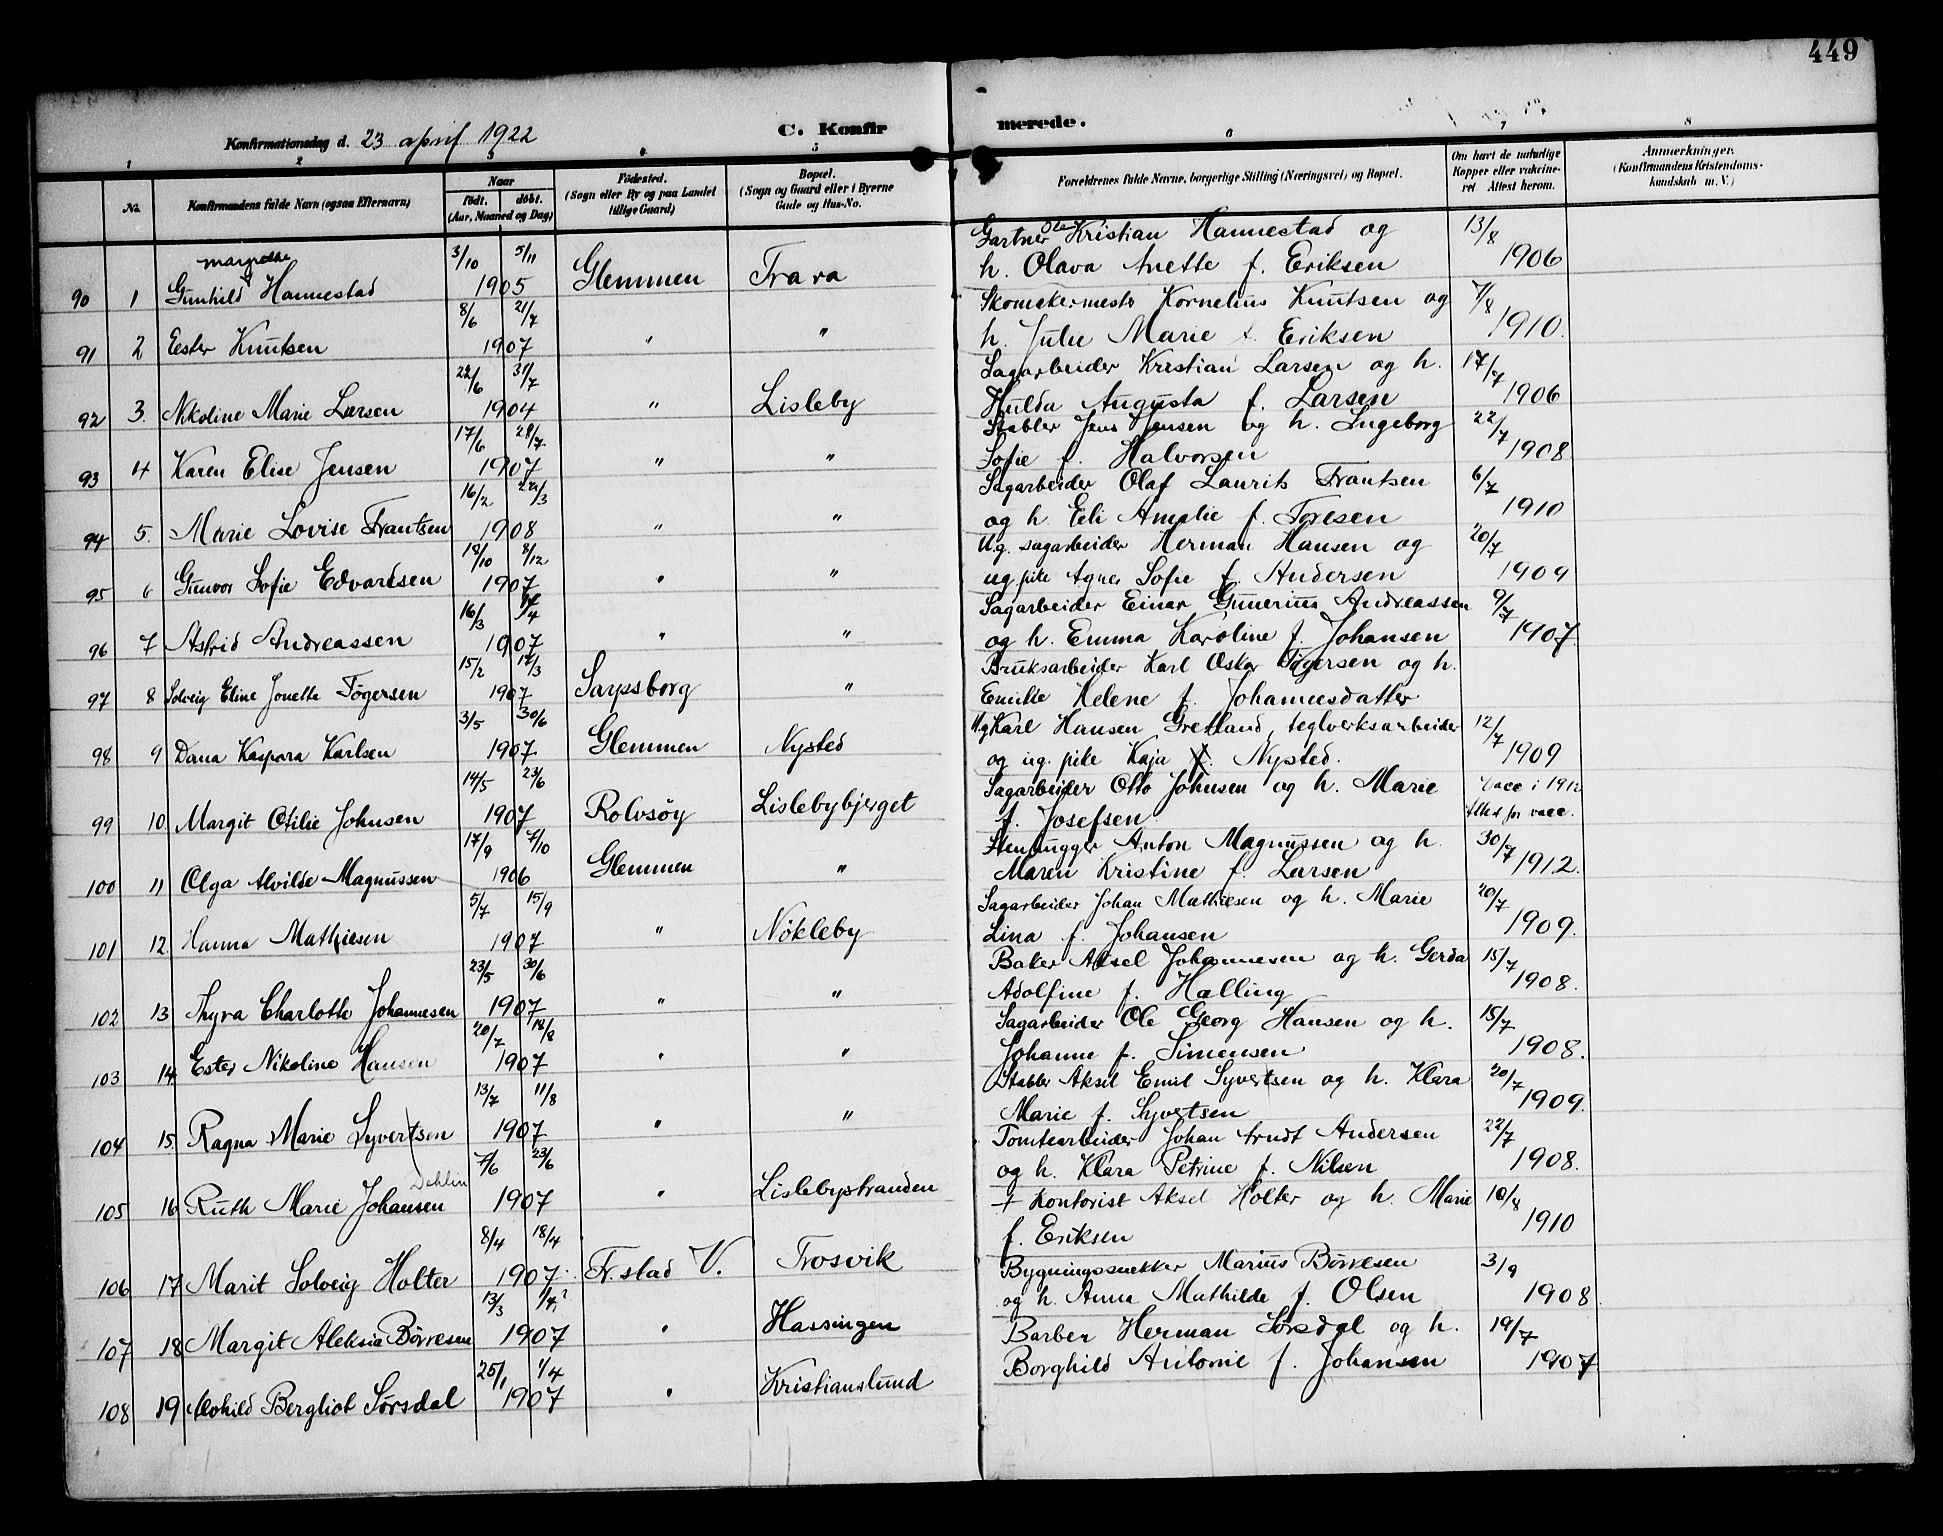 449
Konfirmationsdag d. 23 april 1922
C. Konfir
merede.
1 2 3 4 5 6 7 8
No.
Konfirmandens fulde Navn (ogsaa Efternavn)
Naar
født. døbt.
(Aar, Maaned og Dag)
Fødested.
(Sogn eller By og paa Landet
tillige Gaard)
Bopæl.
(Sogn og Gaard eller i Byerne
Gade og Hus-No.
Forældrenes fulde Navne, borgerlige Stilling (Næringsvei) og Bopæl.
Om havt de naturlige
Kopper eller vakcine-
ret Attest herom.
Anmerkninger.
(Konfirmandens Kristendoms-
kundskab m. V.)
margrethe 3/10 5/11 Gartner Ole Kristian Hannestad og 13/8
90 1 Gunhild Hannestad 1905 Glemmen Trara h. Olava Anette f. Eriksen 1906
8/6 21/7 Skomakermester Kornelius Knutsen og 7/8
91 2 Ester Knutsen 1907 " " h. Julie Marie f. Eriksen 1910.
22/6 31/7 Sagarbeider Kristian Larsen og h. 17/7
92 3. Nikoline Marie Larsen 1904 " Lisleby Hulda Augusta f. Larsen 1906
17/6 28/7 Stabler Jens Jensen og h. Ingeborg 22/7
93 4 Karen Elise Jensen 1907 " " Sofie f. Halvorsen 1908
16/2 22/3 Sagarbeider Olaf Laurits Frantsen 6/7
94 5. Marie Lovise Frantsen 1908 " " og h. Eli Amalie f. Toresen 1910
18/10 8/12 Ug. sagarbeider Herman Hansen og 20/7
95 6 Gunvor Sofie Edvardsen 1907 " " ug pike Agnes Sofie f. Andersen 1909
16/3 /4 Sagarbeider Einar Gunerius Andreassen 9/7
96 7 Astrid Andreassen 1907 " " og h. Emma Karoline f. Johansen 1907.
15/2 17/3 Bruksarbeider Karl Oskar Tøgersen og h.
97 8 Solveig Eline Jonette Tøgersen 1907 Sarpsborg " Emilie Helene f. Johannesdatter
3/5 30/6 Ug Karl Hansen Gretland, teglverksarbeider 12/7
98 9 Dana Kaspara Karlsen 1907 Glemmen Nysted og ug. pike Kaja f. Nysted. 1909
14/5 23/6 Sagarbeider Otto Johnsen og h. Marie Vacc i 1912
99 10. Margit Otilie Johnsen 1907 Rolvsøy Lislebybjerget f. Josefsen Attest for vacc.
17/9 7/10 Stenhugger Anton Magnussen og h. 30/7
100 11 Olga Alvilde Magnussen 1906 Glemmen " Maren Kristine f. Larsen 1912.
5/7 15/9 Sagarbeider Johan Mathiesen og h. Marie 20/7
101 12. Hanna Mathiesen 1907 " Nökleby Lina f. Johansen 1909.
23/5 30/6 Baker Aksel Johannesen og h. Gerda 15/7
102 13 Thyra Charlotte Johannesen 1907 " " Adolfine f. Hælling 1908.
20/7 18/8 Sagarbeider Ole Georg Hansen og h. 15/7
103 14. Ester Nikoline Hansen 1907 " " Johanne f. Simensen 1908.
13/7 11/8 Stabler Aksel Emil Syvertsen og h. Klara 20/7
104 15. Ragna Marie Syvertsen 1907 " " Marie f. Syvertsen 1909.
Dehlin 7/6 23/6 Tomtearbeider Johan Arndt Andersen 22/7
105 16 Ruth Marie Johansen 1907 " Lislebystranden og h. Klara Petrine f. Nilsen 1908.
8/4 18/4 + Kontorist Aksel Holter og h. Marie 10/8
106 17 Marit Solveig Holter 1907. Fr.stad V. Trosvik f. Eriksen 1910
13/3 1/4? Bygningssnekker Marius Börresen 3/9
107 18 Margit Aleksia Börresen 1907 " Hassingen og h. Anna Mathilde f. Olsen 1908
25/1 1/4 Barber Herman Sörsdal og h. 19/7
108 19 Alvhild Bergliot Sörsdal 1907 " Kristianslund Borghild Antonie f. Johansen 1907